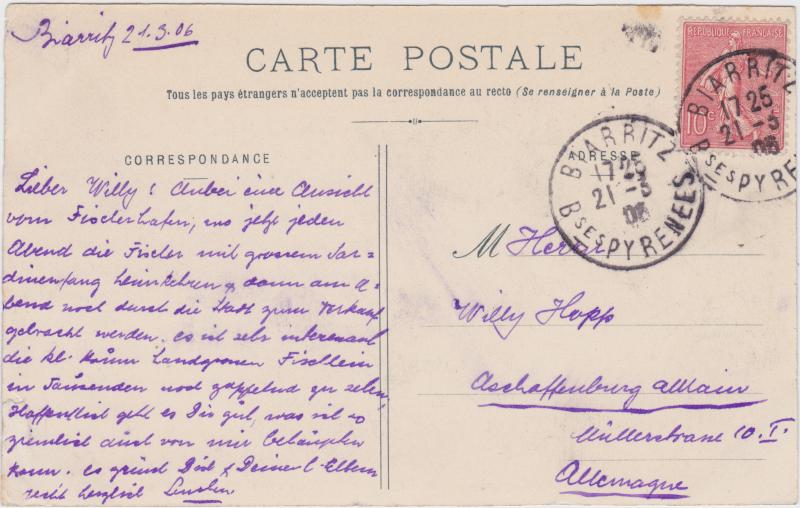 Biarritz 21.3.06
CARTE POSTALE
Tous les pays étrangers n'acceptent pas la correspondance au recto (Se renseigner à la Poste)
REPUBLIQUE FRANÇAISE
10c
BIARRITZ
17 25
21 -3
06
Bses PYRENEES
BIARRITZ
17 25
21 -3
06
Bses PYRENEES
CORRESPONDANCE
Lieber Willy! Anbei eine Ansicht
vom Fischerhafen, wo jetzt jeden
Abend die Fischer mit grossem Sar=
dinenfang heimkehren & dann am A=
bend noch durch die Stadt zum Verkauf
gebracht werden. es ist sehr interessant
die kl. kaum handgrossen Fischlein
in Tausenden noch zappelnd zu sehen.
Hoffentlich geht es Dir gut, was ich so
ziemlich auch von mir behaupten
kann. es grüsst Dich & Deine l. Eltern
recht herzlich
ADRESSE
M Herrn
Willy Hopp
Aschaffenburg a Main
Müllerstrasse 10. I.
Allemagne